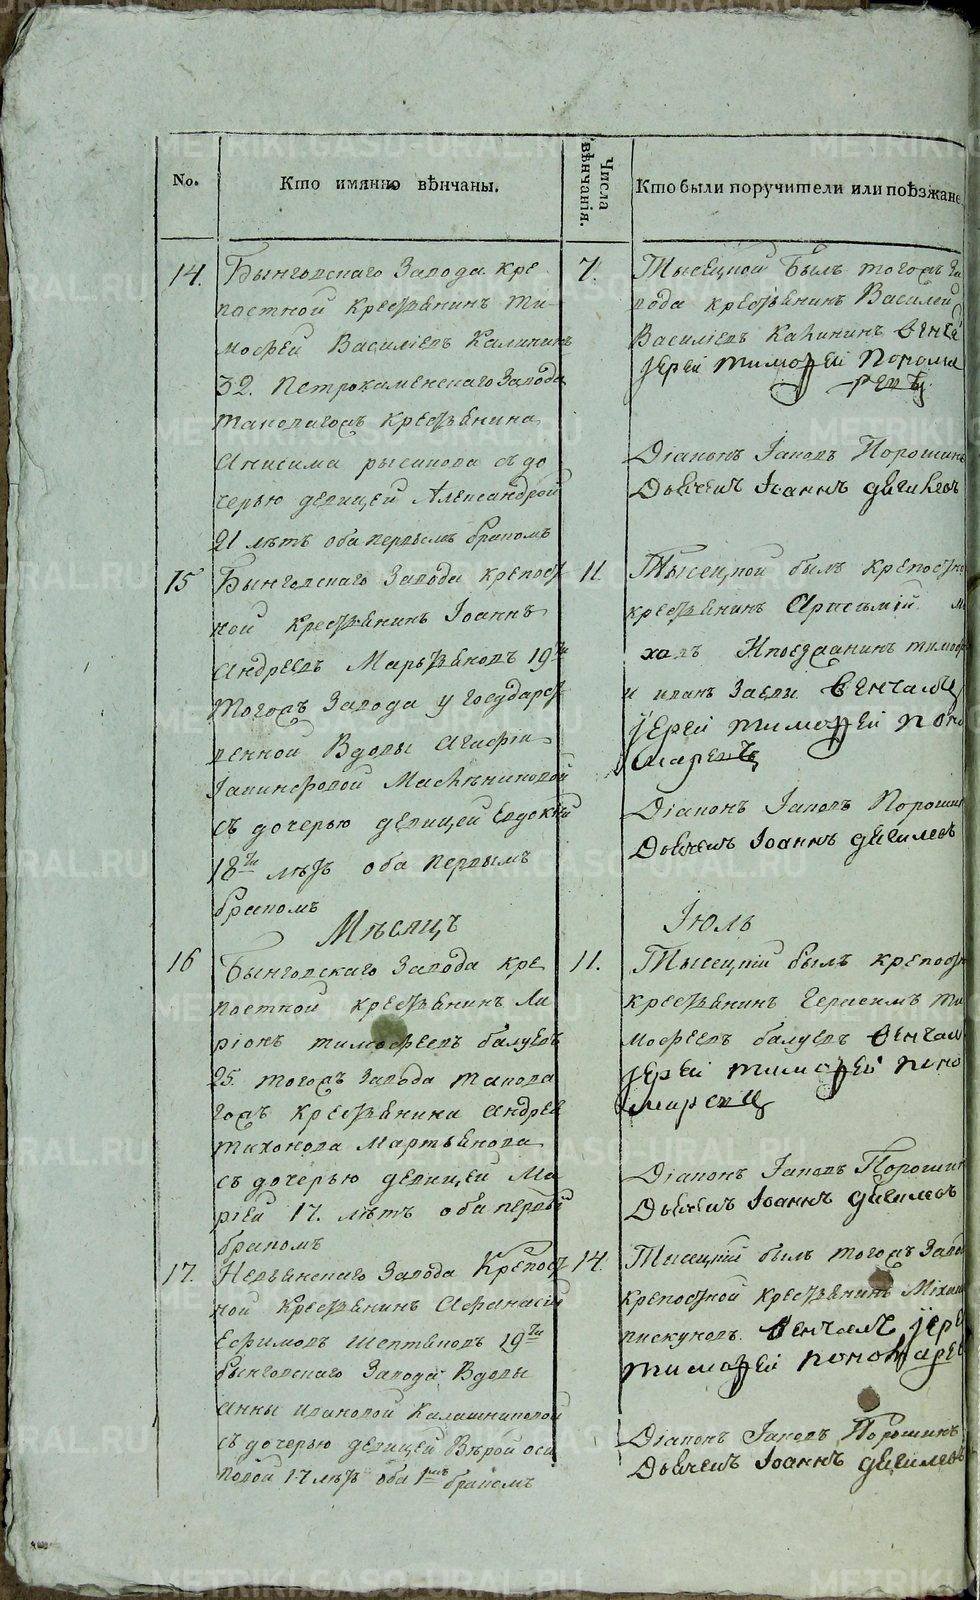 No.
Кто имянно вѣнчаны.
Числа вѣнчанія.
Кто были поручители или поѣзжане
14.
Бынговскаго Завода кре
постной крестьянинъ Ти
мофей Василіевъ Калининъ
32. Петрокаменскаго Завода
таковагожъ крестьянина
Анисима рысакова съ до
черью девицей Александрой
21 лѣтъ оба первымъ бракомъ
7.
Тысецкой былъ тогожъ За
вода крестьянинъ Василей
Василіевъ Калининъ венча
Іерей тимофей понома
ревъ
Діаконъ Іаковъ Порошинъ
Дьячекъ Іоаннъ
15
Бынговскаго Завода крепост
ной крестьянинъ Іоаннъ
Андреевъ Мартьяновъ 19ти
тогожъ Завода у государст
венной Вдовы
съ дочерью девицей Евдокіей
18ти лѣтъ оба первымъ
бракомъ
11.
Тысецкой былъ крепостно
крестьянинъ
и иванъ венчалъ
Іерей тимофей поно
маревъ
Діаконъ Іаковъ Порошин
Дьячекъ Іоаннъ
Мѣсяцъ
Іюль
16
Бынговскаго Завода кре
постной крестьянинъ Ла
ріонъ тимофеевъ балуевъ
25. тогожъ Завода такова
гожъ крестьянина андрея
тихонова Мартьянова
съ дочерью девицей Ма
ріей 17. лѣтъ оба первы
бракомъ
11.
Тысецкій былъ крепостн
крестьянинъ Герасимъ ти
мофеевъ балуевъ венчал
Іерей тимофей поно
маревъ
Діаконъ Іаковъ Порошин
Дьячекъ Іоаннъ
17.
Невьянскаго Завода Крепост
ной Крестьянинъ Афанасій
Ефимовъ 19ти
бынговскаго Завода Вдовы
анны ивановой Калашниковой
съ дочерью девицей Вѣрой оси
повой 17 лѣтъ оба 1мъ бракомъ
14.
Тысецкій былъ тогожъ Заво
крепостной крестьянинъ Михаи
пискуновъ. венчалъ Іере
тимофей пономарев
Діаконъ Іаковъ Порошинъ
Дьячекъ Іоаннъ
METRIKI.GASO-URAL.RU